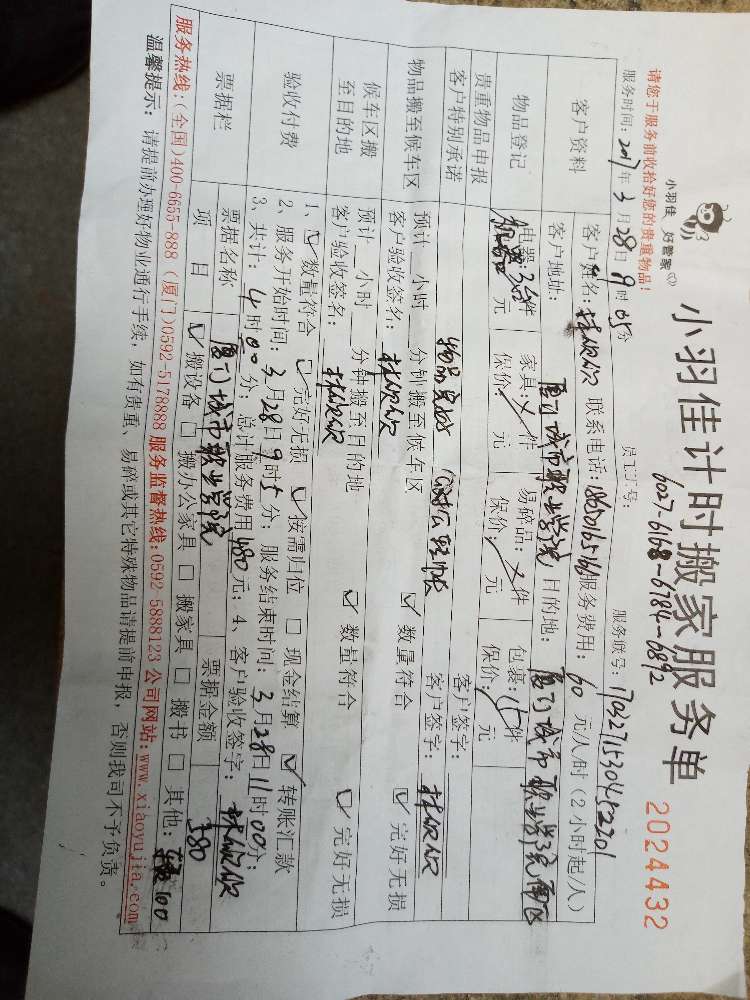 小羽佳 好管家
小羽佳计时搬家服务单
2024432
请您于服务前收拾好您的贵重物品！
员工工号：6027-6168-6784-6892
服务时间：2017年3月28日9时05分
服务账号：1703271530452201
客户资料
客户姓名：
联系电话：
服务费用：60元/人/时（2小时起/人）
客户地址：厦门城市职业学院
目的地：厦门城市职业学院南区
物品登记
电器：35件
家具：/件
易碎品：/件
包裹：15件
元
保价：/元
保价：/元
保价：/元
贵重物品申报
客户签字：
客户特别承诺
客户签字：
物品搬至候车区
预计 小时 分钟搬至候车区
☑ 数量符合
☑ 完好无损
客户验收签名：
候车区搬至目的地
预计 小时 分钟搬至目的地
☑ 数量符合
☑ 完好无损
客户验收签名：
验收付费
1、☑ 数量符合 ☑ 完好无损 ☑ 按需归位 □ 现金结算 ☑ 转账汇款
2、服务开始时间：3月28日9时5分；服务结束时间：3月28日11时00分；
3、共计：4时00分；总计服务费用480元；4、客户验收签字：
票据栏
票据名称
厦门城市职业学院
票据金额
580
项目
☑ 搬设备 □ 搬办公家具 □ 搬家具 □ 搬书 □ 其他：100
服务热线：(全国)400-6655-888 (厦门)0592-5178888 服务监督热线：0592-5888123 公司网站：www.xiaoyujia.com
温馨提示：请提前办理好物业通行手续，如有贵重、易碎或其它特殊物品请提前申报，否则我司不予负责。